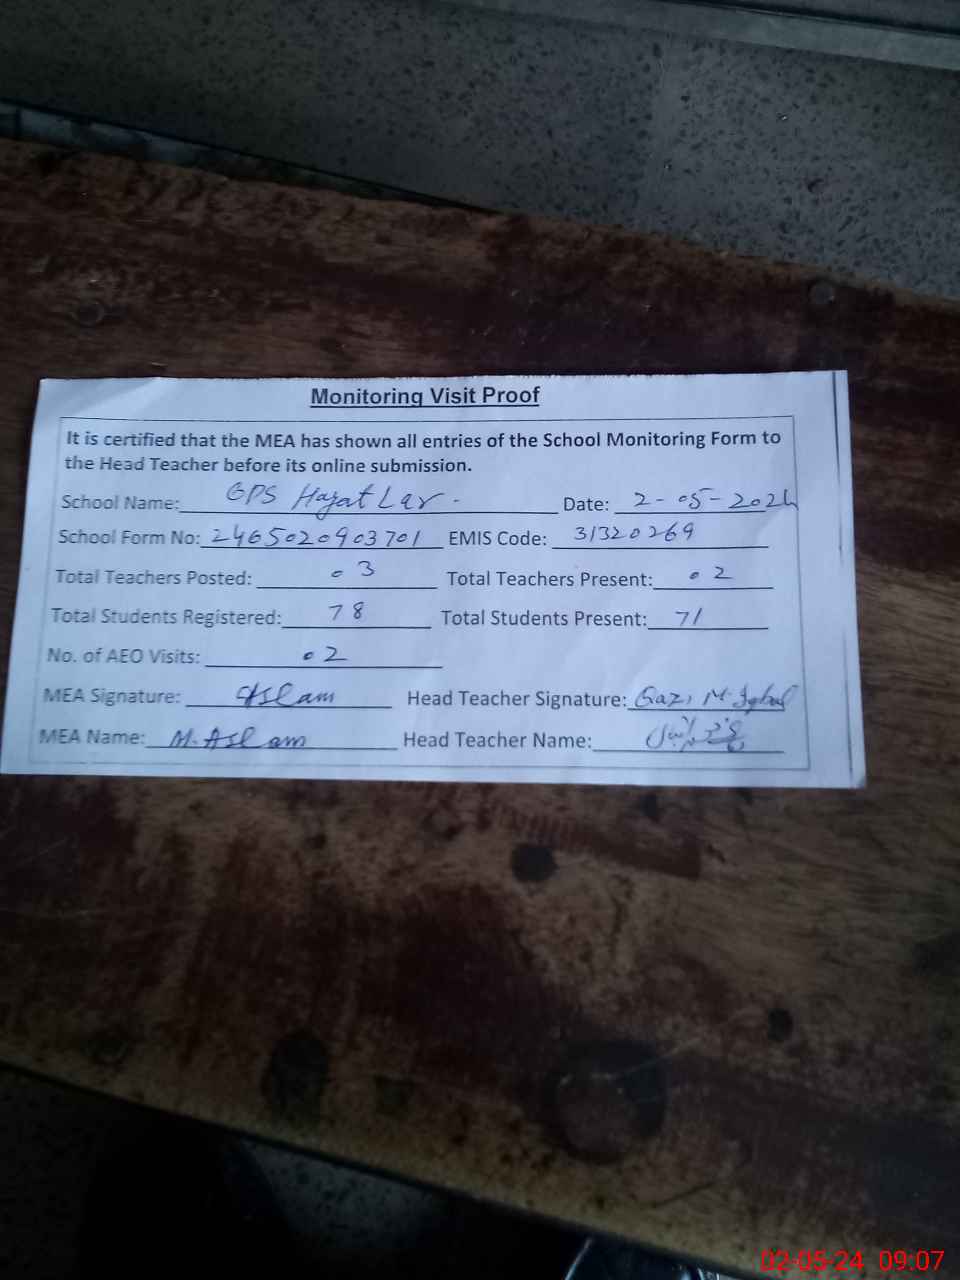 Monitoring Visit Proof
It is certified that the MEA has shown all entries of the School Monitoring Form to
the Head Teacher before its online submission.
School Name: GPS Hayat Lar. Date: 2-05-2024
School Form No: 2465020903701 EMIS Code: 31320269
Total Teachers Posted: 03 Total Teachers Present: 02
Total Students Registered: 78 Total Students Present: 71
No. of AEO Visits: 02
MEA Signature: Aslam Head Teacher Signature: Gazi M. Iqbal
MEA Name: M. Aslam Head Teacher Name:
02-05-24 09:07